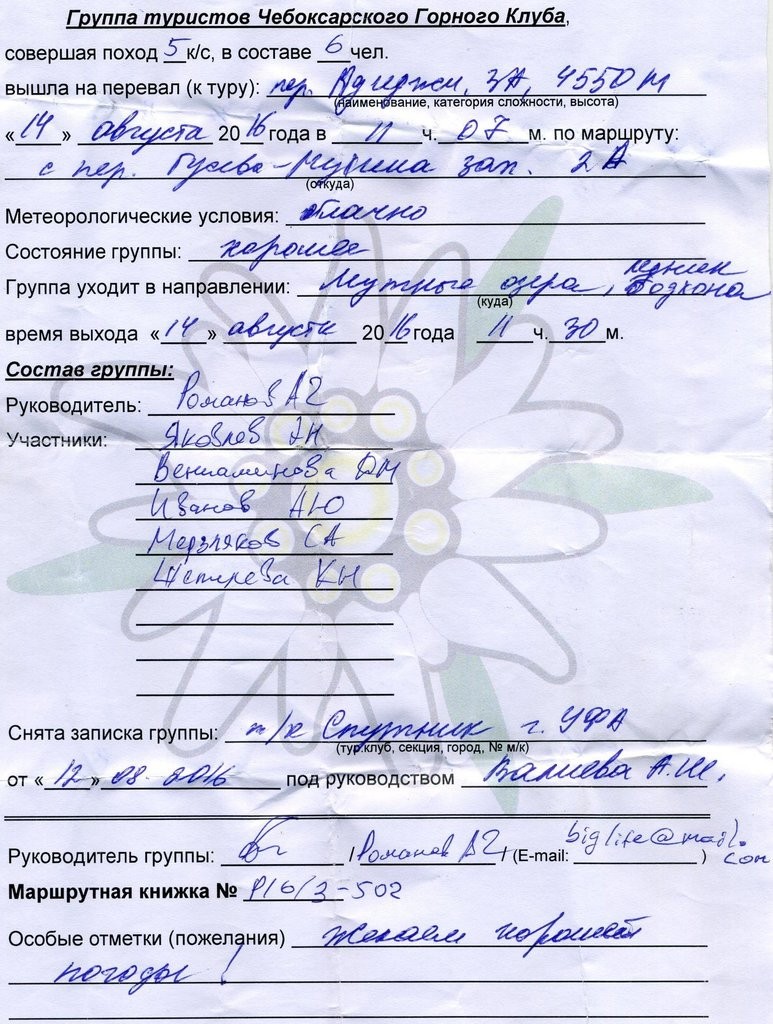 Группа туристов Чебоксарского Горного Клуба,
совершая поход 5 к/с, в составе 6 чел.
вышла на перевал (к туру): пер. Адыржи, 3А, 4550 м
(наименование, категория сложности, высота)
«14» августа 2016 года в 11 ч. 07 м. по маршруту:
с пер. Гусева-Мушина зап. 2А
(откуда)
Метеорологические условия: облачно
Состояние группы: хорошее
Группа уходит в направлении: Мутные озера, ледник Бодхона
(куда)
время выхода «14» августа 2016 года 11 ч. 30 м.
Состав группы:
Руководитель: Романов АГ
Участники: Яковлев АН
Вениаминова ДМ
Иванов АЮ
Мерзляков СА
Шетирева КН
Снята записка группы: т/к Спутник г. УФА
(тур.клуб, секция, город, № м/к)
от «12» 08. 2016 под руководством Валиева А.Ш.
Руководитель группы: / Романов АГ / (E-mail: biglife@mail.com )
Маршрутная книжка № Р16/3-502
Особые отметки (пожелания) Желаем хорошей
погоды!